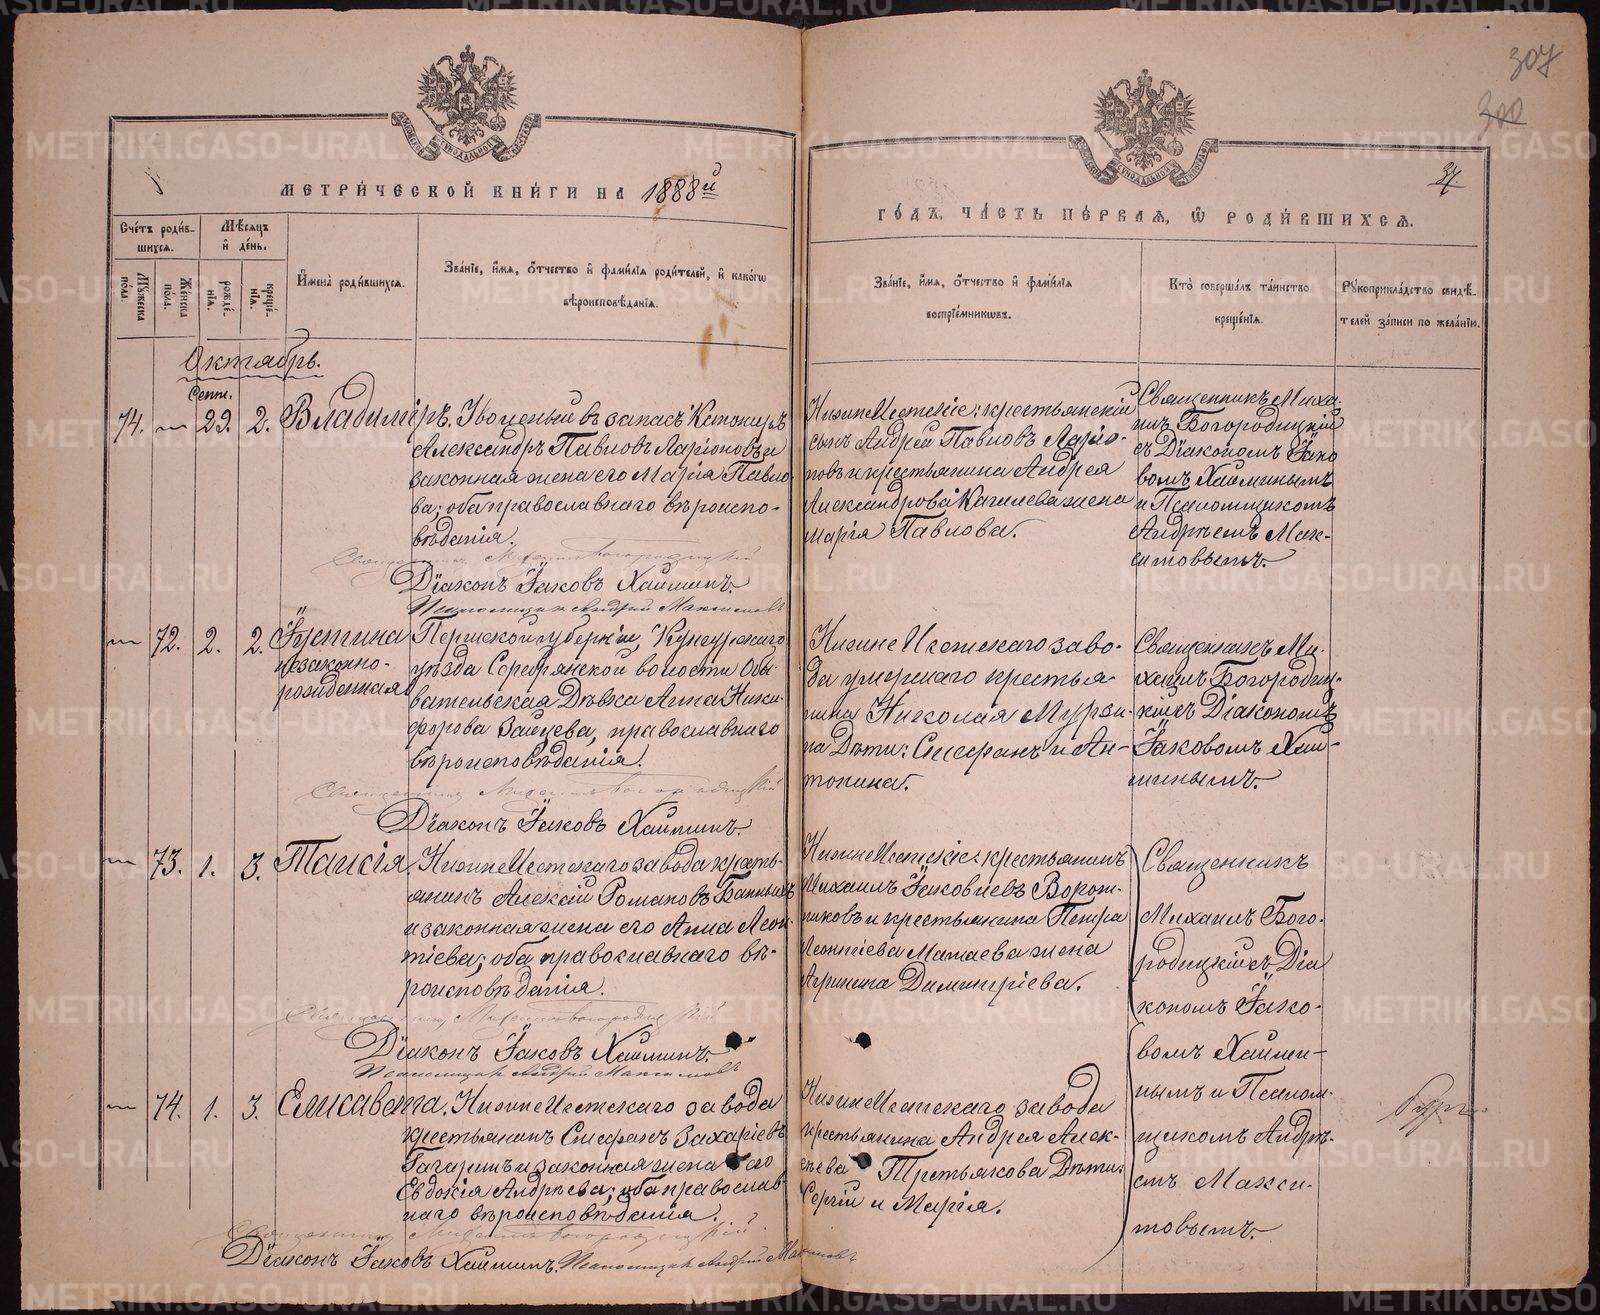 307
300
37.
МЕТРИ́ЧЕСКОЙ КНИ́ГИ НА 1888й
ГО́ДЪ, ЧА́СТЬ ПЕ́РВАѦ, Ѡ РОДИ́ВШИХСѦ.
Сче́тъ роди́в-
шихся.
Мѣ́сяцъ
и де́нь.
Мꙋ́жеска
по́ла.
Же́нска
по́ла.
рожде́-
нія.
креще́-
нія.
Имена̀ роди́вшихся.
Зва́ніе, и́мя, о́тчество и фами́лія роди́телей, и како́гѡ
вѣроисповѣ́данія.
Зва́ніе, и́мя, о́тчество и фами́лія
воспріе́мникѡвъ.
Кто̀ соверша́лъ та́инство
креще́нія.
Рꙋкоприкла́дство свидѣ́-
телей за́писи по жела́нію.
Октябрь.
Сент.
74. — 29. 2. Владиміръ.
Уволенный въ запасъ Каноніръ
Александръ Павловъ Ларіоновъ и
законная жена его Марія Павло
ва; оба православнаго вѣроиспо-
вѣданія.
Священникъ Михаилъ Богородицкій
Діаконъ Іаковъ Хайминъ.
Псаломщикъ Андрей Максимовъ
Нижне Исетскіе: крестьянскій
сынъ Андрей Павловъ Ларіо-
новъ и крестьянина Андрея
Александрова Качилева жена
Марія Павлова.
Священникъ Миха-
илъ Богородицкій
съ Діакономъ Іако
вомъ Хайминымъ
и Псаломщикомъ
Андреемъ Мак-
симовымъ.
— 72. 2. 2. Іустина
незаконно-
рожденная
Пермской губерніи, Кунгурскаго
уѣзда Серебрянской волости Обы-
вательская Дѣвка Анна Ники-
форова Зайцева, православнаго
вѣроисповѣданія.
Священникъ Михаилъ Богородицкій
Діаконъ Іаковъ Хайминъ.
Нижне Исетскаго заво-
да умершаго крестья-
нина Николая Мурзи-
на Дѣти: Стефанъ и Ан-
тонина.
Священникъ Ми-
хаилъ Богородиц-
кій съ Діакономъ
Іаковомъ Хай-
минымъ.
— 73. 1. 3. Таисія.
Нижне Исетскаго завода кресть-
янинъ Алексій Романовъ Банныхъ
и законная жена его Анна Леон-
тіева; оба православнаго вѣ-
роисповѣданія.
Священникъ Михаилъ Богородицкій
Діаконъ Іаковъ Хайминъ.
Псаломщикъ Андрей Максимовъ
Нижне Исетскіе: крестьянинъ
Михаилъ Іаковлевъ Ворож-
никовъ и крестьянина Петра
Леонтіева Матаева жена
Агрипина Димитріева.
Священникъ
Михаилъ Бого-
родицкій съ Діа
кономъ Іако-
вомъ Хайми-
нымъ и Псалом-
щикомъ Андре-
емъ Макси-
мовымъ.
— 74. 1. 3. Елисавета.
Нижне Исетскаго завода
крестьянинъ Стефанъ Захаріевъ
Гагаринъ и законная жена его
Евдокія Андреева; оба православ-
наго вѣроисповѣданія.
Священникъ Михаилъ Богородицкій.
Діаконъ Іаковъ Хайминъ. Псаломщикъ Андрей Максимовъ
Нижне Исетскаго завода
крестьянина Андрея Алек-
сѣева Третьякова Дѣти:
Сергій и Марія.
METRIKI.GASO-URAL.RU